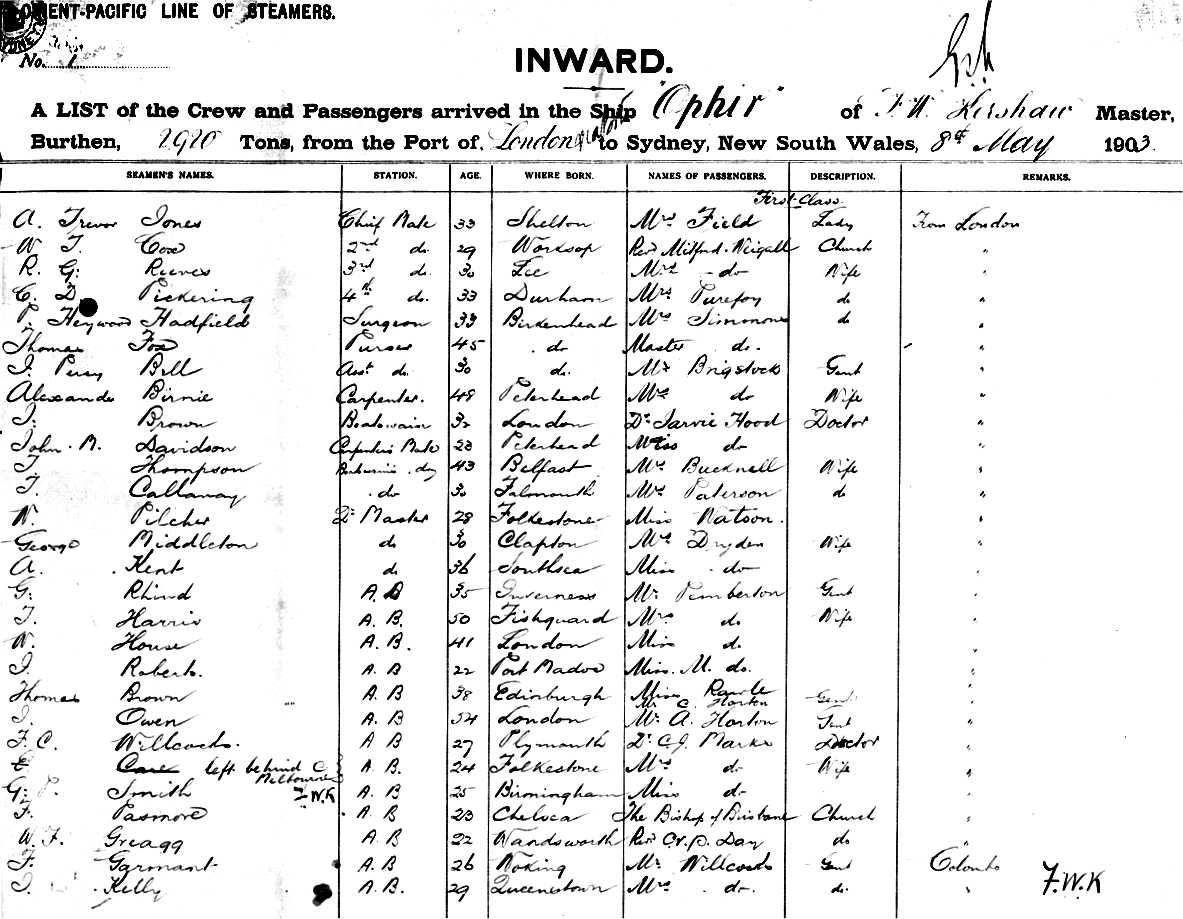 ORIENT-PACIFIC LINE OF STEAMERS.
No. 1
INWARD.
A LIST of the Crew and Passengers arrived in the Ship "Ophir" of F. W. Kershaw Master,
Burthen, 2920 Tons, from the Port of London to Sydney, New South Wales, 8th May 1903.
SEAMEN'S NAMES. STATION. AGE. WHERE BORN. NAMES OF PASSENGERS. DESCRIPTION. REMARKS.
First Class
A. Trevor Jones Chief Mate 33 Shelton Mrs Field Lady From London
W T. Cox 2nd do. 29 Worksop Revd Milford-Weigall Church "
R. G. Reeves 3rd d. 30 Lee Mrs do Wife "
C. D. Pickering 4th do. 33 Durham Mrs Purefoy do "
Heywood Hadfield Surgeon 33 Birkenhead Mrs Simmons do "
Thomas Fox Purser 45 do Master do. "
J. Percy Bell Asst do. 30 do. Mr Brigstock Gent "
Alexander Birnie Carpenter. 48 Peterhead Mrs do Wife "
J. Brown Boatswain 32 London Dr Jarvie Hood Doctor "
John. M. Davidson Carpenters Mate 23 Peterhead Miss do "
T. Thompson 43 Belfast Mrs Bucknell Wife "
T. Callaway do 30 Falmouth Mrs Paterson do "
W. Pilcher Qr Master 28 Folkestone Miss Watson. "
George Middleton do 30 Clapton Mrs Dryden Wife "
A. Kent do 36 Southsea Miss do "
G. Rhind A.B 35 Inverness Mr Pemberton Gent "
T. Harris A.B. 50 Fishguard Mrs do Wife "
W. House A.B. 41 London Miss do "
J. Roberts. A.B 22 Port Madoc Miss. M. do. "
Thomas Brown A.B 38 Edinburgh Miss Rawle "
Mr C. Horton Gent
J. Owen A.B 54 London Mr A. Horton Gent "
F. C. Willcocks. A B 27 Plymouth Dr C.J. Marks Doctor "
E Care left behind @ A.B. 24 Folkestone Mrs do Wife "
Melbourne
F.W.K
G. P. Smith A.B 25 Birmingham Miss do "
F. Pasmore A B 23 Chelsea The Bishop of Brisbane Church "
W. F. Greagg A B 22 Wandsworth Revd do "
F. Garmant A.B 26 Woking Mr Willcocks Gent Colombo
J. Kelly A.B. 29 Queenstown Mrs do. do. " F.W.K